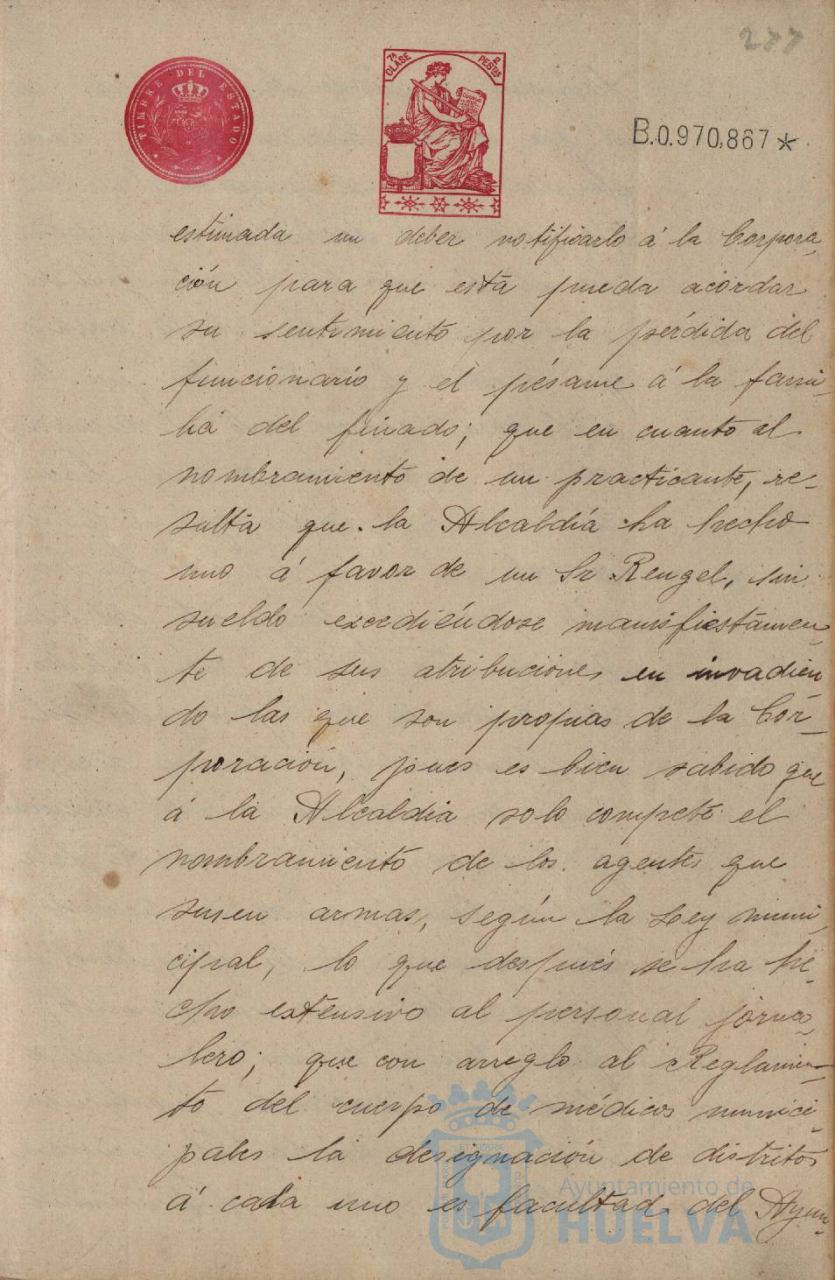 277
TIMBRE DEL ESTADO
7ª CLASE
2 PESETAS
B.0.970,867*
estimada un deber notificarlo á la Corpora-
ción para que está pueda acordar
su sentimiento por la pérdida del
funcionario y el pésame á la fami-
lia del finado; que en cuanto al
nombramiento de un practicante, re-
sulta que la Alcaldía ha hecho
uno á favor de un Sr Rengel, sin
sueldo excediéndose manifiestamen-
te de sus atribuciones en invadien
do las que son propias de la Cor-
poración, pues es bien sabido que
á la Alcaldia solo compete el
nombramiento de los agentes que
usen armas, según la Ley muni-
cipal, lo que después se ha he-
cho extensivo al personal jorna-
lero; que con arreglo al Reglamen-
to del cuerpo de médicos munici-
pales la designación de distritos
á cada uno es facultad del Ayun-
Ayuntamiento de
HUELVA